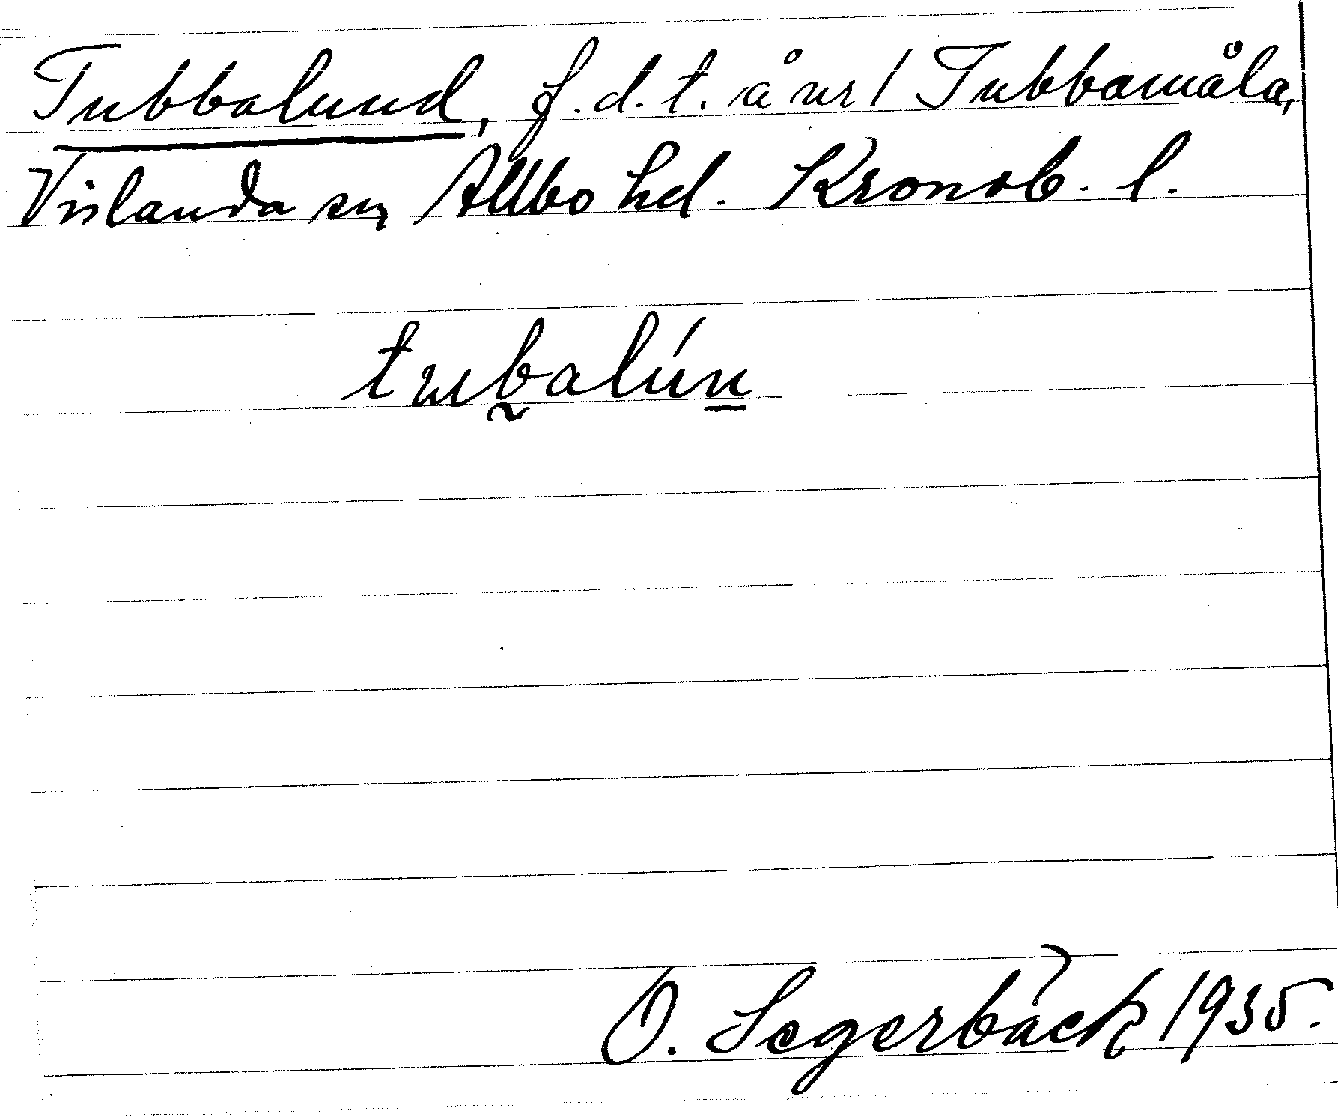 Tubbalund, f.d.t. å nr 1 Tubbamåla,
Vislanda sn, Allbo hd. Kronob. l.
tub̰alún̲
O. Segerbäck 1935.